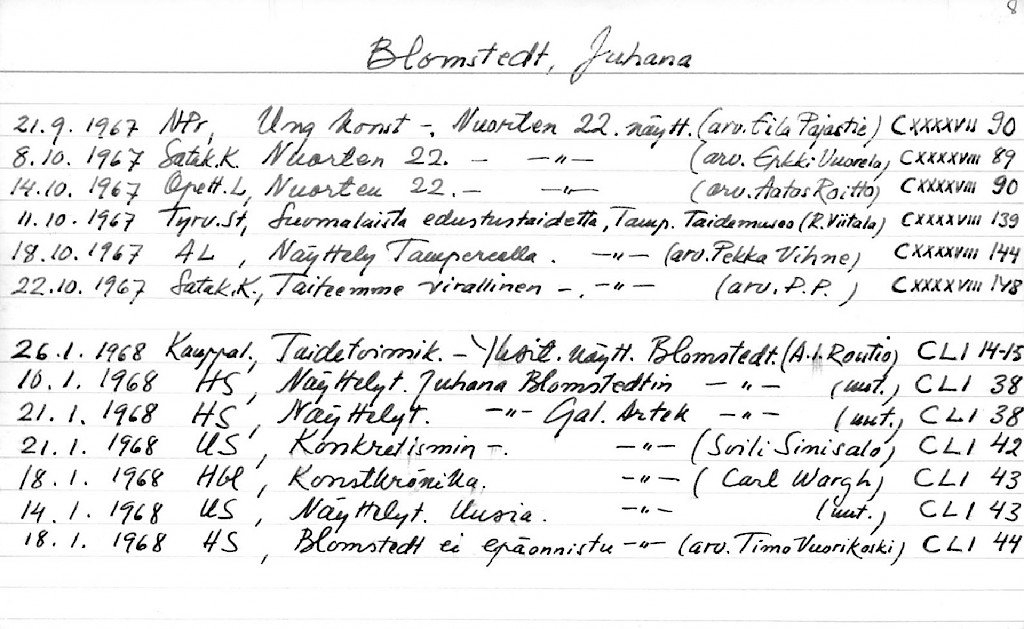 8
Blomstedt, Juhana
21.9. 1967 NPr, Ung konst -, Nuorten 22. näytt. (arv. Eila Pajastie) CXXXXVII 90
8.10. 1967 Satak.K. Nuorten 22. - -"- (arv. Erkki Vuorela, CXXXXVIII 89
14.10. 1967 Opett.L, Nuorten 22. - -"- (arv. Aatos Roitto) CXXXXVIII 90
11.10. 1967 Tyrv.St, Suomalaista edustustaidetta, Tamp. Taidemuseo (R. Viitala) CXXXXVIII 139
18.10. 1967 AL, Näyttely Tampereella. -"- (arv. Pekka Vihne) CXXXXVIII 144
22.10. 1967 Satak.K., Taiteemme virallinen -, -"- (arv. P.P.) CXXXXVIII 148
26.1. 1968 Kauppal., Taidetoimik. - Yksit. näytt. Blomstedt. (A.I. Routio) CLI 14-15
10.1. 1968 HS, Näyttelyt. Juhana Blomstedtin -"- (uut.) CLI 38
21.1. 1968 HS, Näyttelyt. -"- Gal. Artek -"- (uut.) CLI 38
21.1. 1968 US, Konkretismin -. -"- (Soili Sinisalo) CLI 42
18.1. 1968 Hbl, Konstkrönika. -"- (Carl Wargh) CLI 43
14.1. 1968 US, Näyttelyt. Uusia. -"- (uut.) CLI 43
18.1. 1968 HS, Blomstedt ei epäonnistu -"- (arv. Timo Vuorikoski) CLI 44